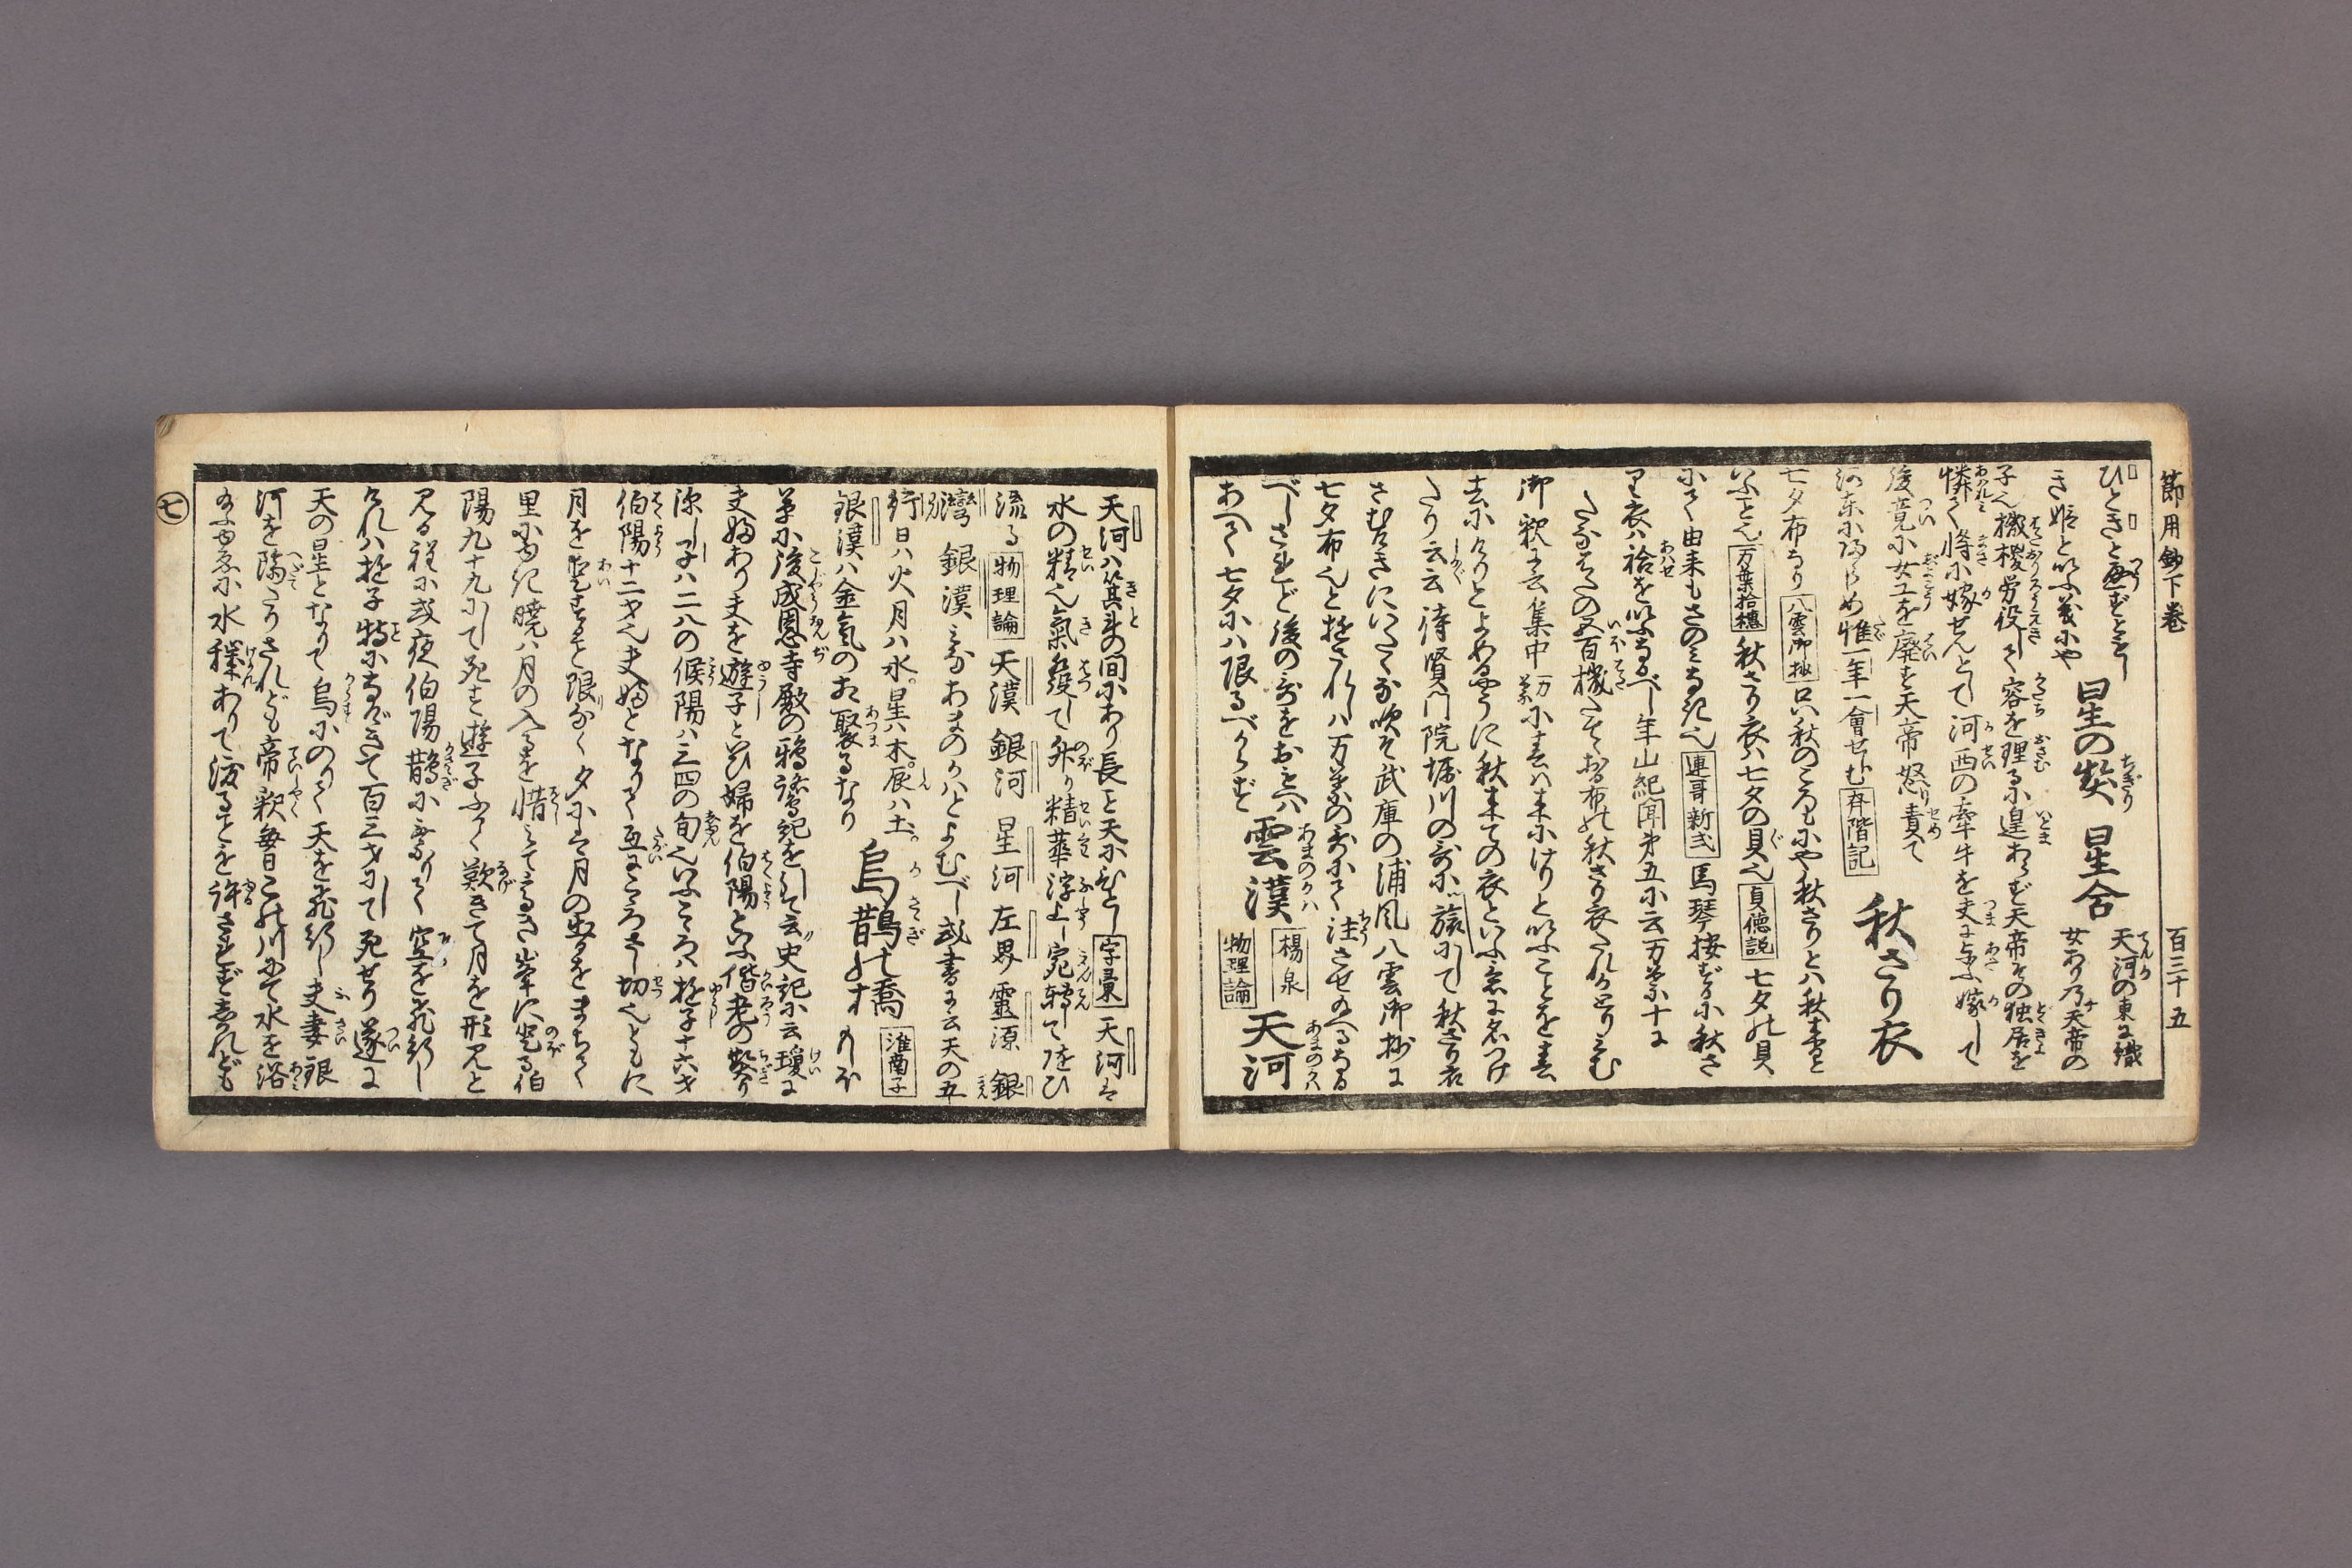 節用鈔下巻 百三十五
き姫と以ふ義にや 星の契 星合 天河の東に織
女あり乃天帝の
子也機榺労役して容を理るに遑あらず天帝その独居を
憐て将に嫁せんとて河西の牽牛を夫に与ふ嫁して
後竟に女工を廃す天帝怒責て
河東に帰らしめ惟一年一會せしむ 斉階記 秋さり衣
七夕布なり 八雲御抄 只秋のころもにや秋さりとハ秋来と
いふと也 万葉拾穂 秋さり衣ハ七夕の具也 貞徳説 七夕の具
にて由来もさのミなき也 連哥新式 馬琴按ずるに秋さ
り衣ハ袷を以ふなるべし年山紀聞第五に云万葉十に
たなばたの五百機たてゝおる布の秋さり衣たれかとりミむ
御釈に云集中 万葉 に春ハ来にけりと以ふことを春
去にけりとよめるやうに秋来ての衣といふ意に名つけ
たり云云待賢門院堀川の哥に旅にして秋さり衣
さむきにいたくな吹そ武庫の浦風八雲御抄に
七夕布也と遊されしハ万葉の哥にて注させ給へるなる
べしされど後の哥をおもへハ 雲漢 楊泉
あへて七夕にハ限るべからず 物理論 天河
天河ハ箕斗の間にあり長と天にひとし 字彙 天河は
水の精也氣發して升り精華浮上し宛轉て陸ひ
流る 物理論 天漢 銀河 星河 左界 靈源 銀
灣 銀漢 ミなあまのかハとよむべし或書に云天の五
行日ハ火月ハ水星ハ木辰ハ土
銀漢ハ金氣のあ聚るなり 烏鵲の橋 淮南子 のりほ
草に後成恩寺殿の鴉鷺記を引て云史記に云瓊に
夫婦あり夫を遊子といひ婦を伯陽といふ偕老の契り
深し子ハ二八の候陽ハ三四の旬也いふこゝろハ遊子十六才
伯陽十二才也夫婦となりて互にこゝろさし切也ともに
月を愛すと限なく夕にハ月の出るをまちて
里にゆき暁ハ月の入るを惜ミて高き峯に登る伯
陽九十九にして死す遊子ふかく歎きて月を形見と
見る程に或夜伯陽鵲に乗りて空を飛行し
けれハ遊子特になげきて百三才にして死せり遂に
天の星となりて烏にのりて天を飛行し夫妻銀
河を隔たりされども帝釈毎日この川にて水を浴
給ふゆゑに水穢ありて渡るとを許されずしかれども
七